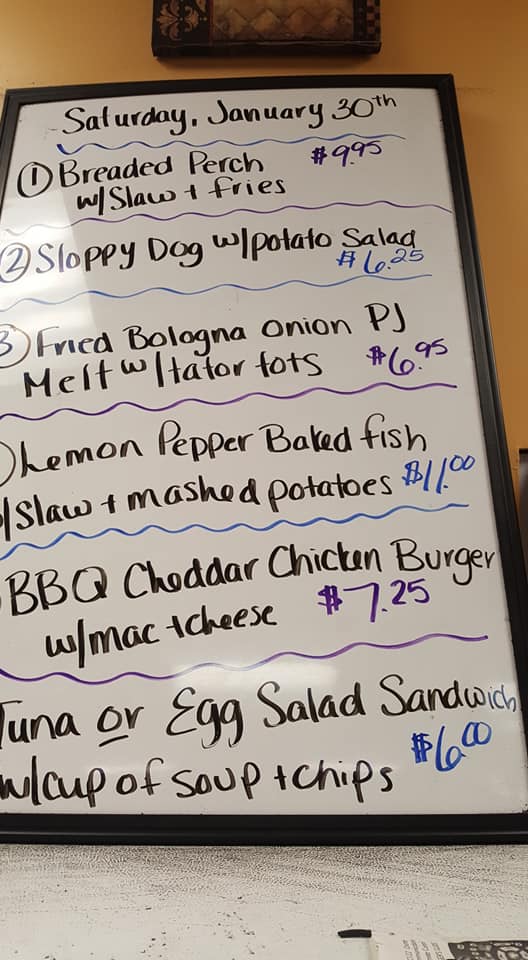 Saturday, January 30th
① Breaded Perch $9.95
w/Slaw + fries
② Sloppy Dog w/potato Salad
$6.25
3 Fried Bologna onion PJ
Melt w/tator tots $6.95
Lemon Pepper Baked fish
/Slaw + mashed potatoes $11.00
BBQ Cheddar Chicken Burger
w/mac + cheese $7.25
Tuna or Egg Salad Sandwich
w/cup of soup + chips $6.00